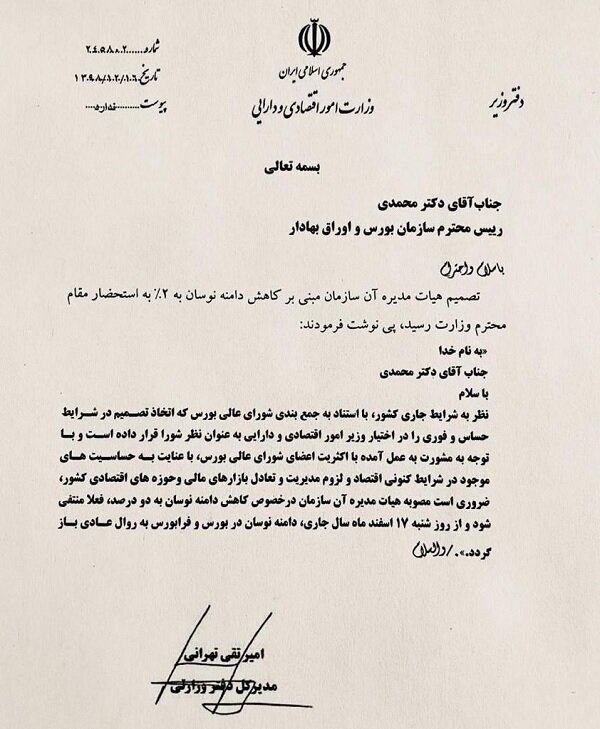 جمهوری اسلامی ایران
وزارت امور اقتصادی و دارایی
دفتر وزیر
شماره......۲۴۵۸۸۰۲
تاریخ ۱۳۹۸/۱۲/۱۶
پیوست..........ندارد
بسمه تعالی
جناب‌آقای دکتر محمدی
رییس محترم سازمان بورس و اوراق بهادار
با سلام و احترام
تصمیم هیات مدیره آن سازمان مبنی بر کاهش دامنه نوسان به ۲٪ به استحضار مقام
محترم وزارت رسید، پی نوشت فرمودند:
«به نام خدا
جناب آقای دکتر محمدی
با سلام
نظر به شرایط جاری کشور، با استناد به جمع بندی شورای عالی بورس که اتخاذ تصمیم در شرایط
حساس و فوری را در اختیار وزیر امور اقتصادی و دارایی به عنوان نظر شورا قرار داده است و با
توجه به مشورت به عمل آمده با اکثریت اعضای شورای عالی بورس، با عنایت به حساسیت های
موجود در شرایط کنونی اقتصاد و لزوم مدیریت و تعادل بازارهای مالی وحوزه های اقتصادی کشور،
ضروری است مصوبه هیات مدیره آن سازمان درخصوص کاهش دامنه نوسان به دو درصد، فعلا منتفی
شود و از روز شنبه ۱۷ اسفند ماه سال جاری، دامنه نوسان در بورس و فرابورس به روال عادی باز
گردد.». / والسلام
امیر تقی تهرانی
مدیرکل دفتر وزارتی